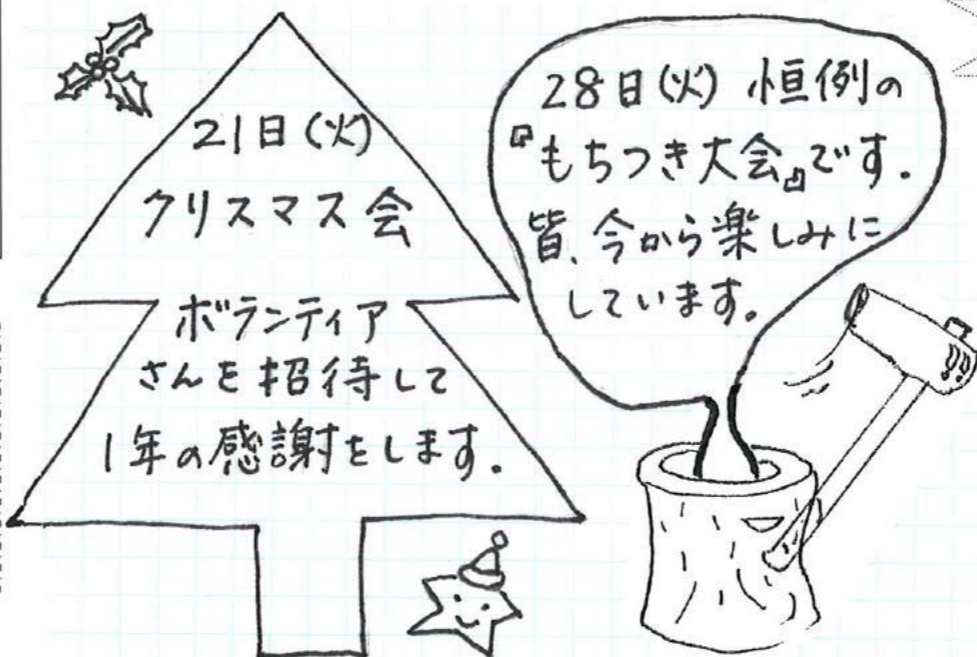 21日(火)
クリスマス会
ボランティア
さんを招待して
1年の感謝をします.
28日(火) 恒例の
『もちつき大会』です.
皆、今から楽しみに
しています。